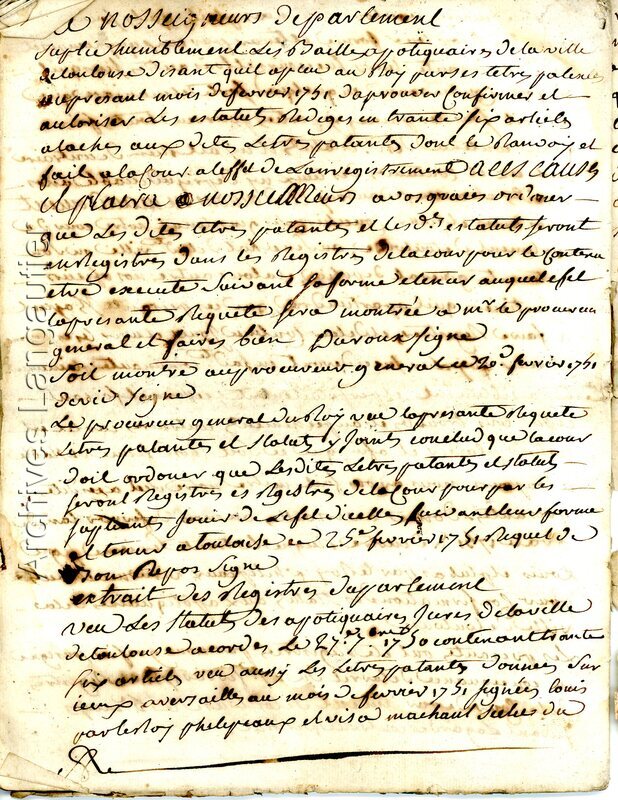 A nosseigneurs deparlement
Suplie humblement Les Bailles apotiquaires delaville
detoulouse disant quil apleu au Roy parses letres patentes
du presant mois defevrier 1751 daprouver Confirmer et
autoriser Les estatuts Rediges en trante six articles
ataches aux dites Letres patantes dont le Renvoy est
fait alaCour aleffet de Lanregistrement ACES CAUSES
il plaira a nosseigneurs avos graces ordoner
que Les dites letres patantes et lesdts estatuts seront
enRegistres dans les Registres delacour pour le Contenu
etre execute Suivant saforme etteneur auquel efet
lapresante Requete sera montrée a mr. le procureur
general et faires bien Duroux Signe
Soit montré auprocureur general ce 20e. fevrier 1751
Signe
Le procureur general duRoy veu lapresante Requete
Letres patantes et Statuts y Joints conclud que lacour
doit ordoner que Lesdites Letres patantes et statuts
seront Registres es Registres delaCour pour par les
supliants Jouir de Lefet dicelles suivant leur forme
et teneur atoulouse ce 25e. fevrier 1751 Riquet de
bon Repos Signe
extrait des Registres duparlement
Veu Les Statuts des apotiquaires Jures delaville
detoulouse acordes Le 27e. 7bre 1750 contenant trante
six articles veu aussy Les Letres patantes donnees Sur
iceux aversailles au mois defevrier 1751 signées louis
par leRoy phelipeaux et visa machaut Scelees du
Archives Langautier